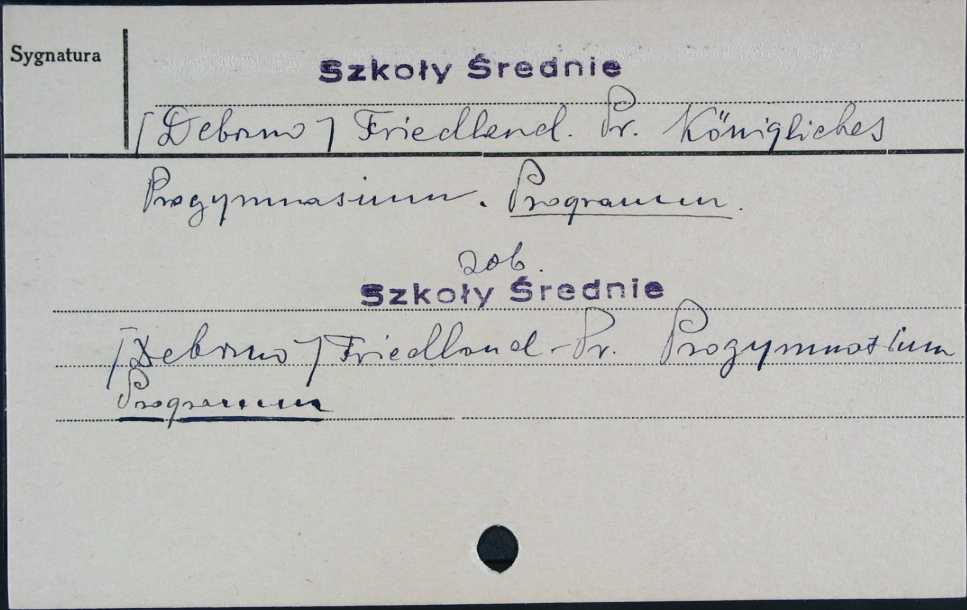 Sygnatura
Szkoły Średnie
[Debrzno] Friedland. Pr. Königliches
Progymnasium. Programm.
zob.
Szkoły Średnie
[Debrzno] Friedland-Pr. Progymnasium
Programm